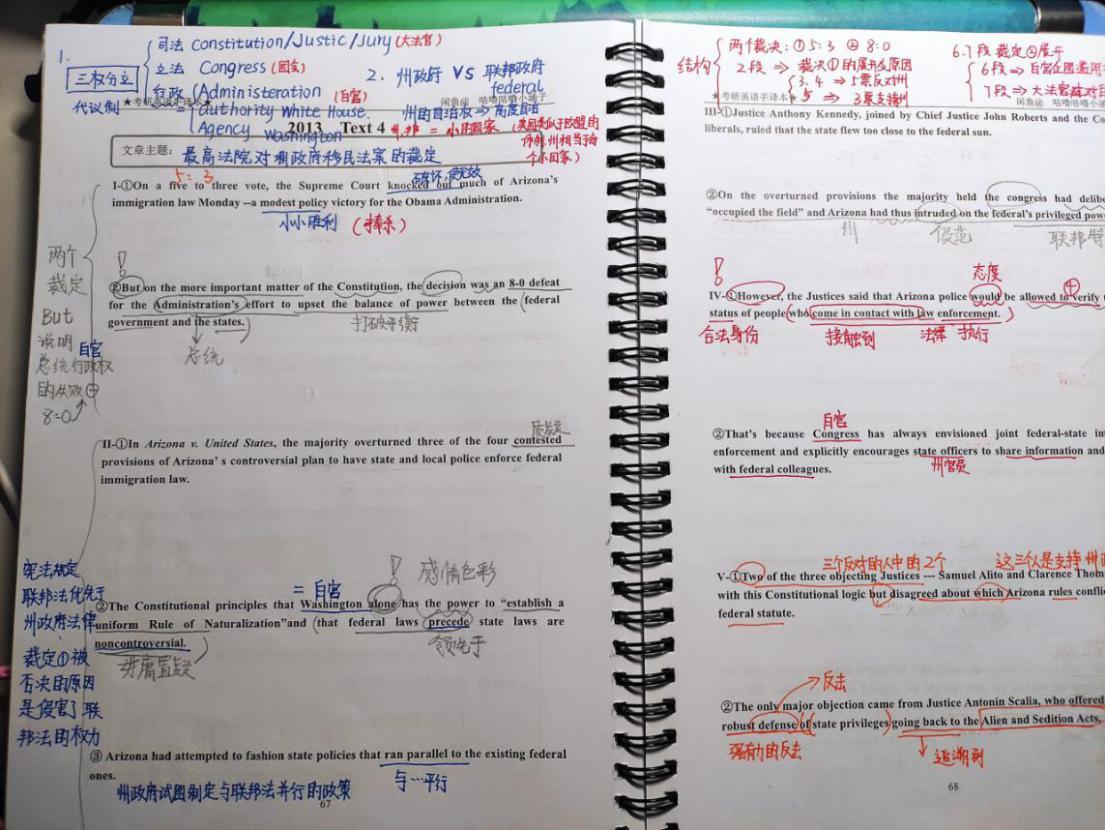 1.
三权分立
代议制
司法 Constitution/Justic/Jury(大法官)
立法 Congress(国会)
行政 (Administeration (白宫)
= authority White House.
Agency Washington
2、州政府 VS 联邦政府
federal
州的自治权⇒高度自由
★考研英语手译本★
闲鱼@ 咕噜咕噜小涵子
2013 Text 4
州,邦 = 小国国家
文章主题:
最高法院对州政府移民法案的裁定
5:3
破坏,使无效
I-①On a five to three vote, the Supreme Court knocked out much of Arizona's
immigration law Monday --a modest policy victory for the Obama Administration.
小小胜利 (捧杀)
两个
裁定
But
说明
白宫
总统行政权
的失效
8=0
②But on the more important matter of the Constitution, the decision was an 8-0 defeat
for the Administration's effort to upset the balance of power between the (federal
government and the states.)
打破平衡
总统
质疑
II-①In Arizona v. United States, the majority overturned three of the four contested
provisions of Arizona's controversial plan to have state and local police enforce federal
immigration law.
宪法规定
联邦法优先于
州政府法律
裁定①被
否决的原因
是侵害了联
邦法的权力
= 白宫
! 感情色彩
②The Constitutional principles that Washington alone has the power to "establish a
uniform Rule of Naturalization"and (that federal laws precede state laws are
noncontroversial.
毋庸置疑
领先于
③ Arizona had attempted to fashion state policies that ran parallel to the existing federal
ones.
州政府试图制定与联邦法并行的政策
与…平行
67
结构
两个裁决:① 5:3 ② 8:0
2段 ⇒ 裁决①的展开及原因
3, 4 ⇒ 5票反对州
5 ⇒ 3票支持州
6.7段 裁定②展开
6段⇒白宫企图滥用
7段⇒大法官
★考研英语手译本★
闲鱼@ 咕噜咕噜小
III-①Justice Anthony Kennedy, joined by Chief Justice John Roberts and the Co
liberals, ruled that the state flew too close to the federal sun.
②On the overturned provisions the majority held the congress had delibe
"occupied the field" and Arizona had thus intruded on the federal's privileged pow
州
侵犯
联邦特
!
态度
IV-①However, the Justices said that Arizona police would be allowed to verify
status of people (who come in contact with law enforcement.)
合法身份
接触到
法律
执行
白宫
②That's because Congress has always envisioned joint federal-state im
enforcement and explicitly encourages state officers to share information and
with federal colleagues.
州官员
三个反对的人中的2个
这三个人是支持州政
V-①Two of the three objecting Justices --- Samuel Alito and Clarence Thom
with this Constitutional logic but disagreed about which Arizona rules confli
federal statute.
反击
②The only major objection came from Justice Antonin Scalia, who offered
robust defense of (state privileges) going back to the Alien and Sedition Acts.
强有力的反击
追溯到
68